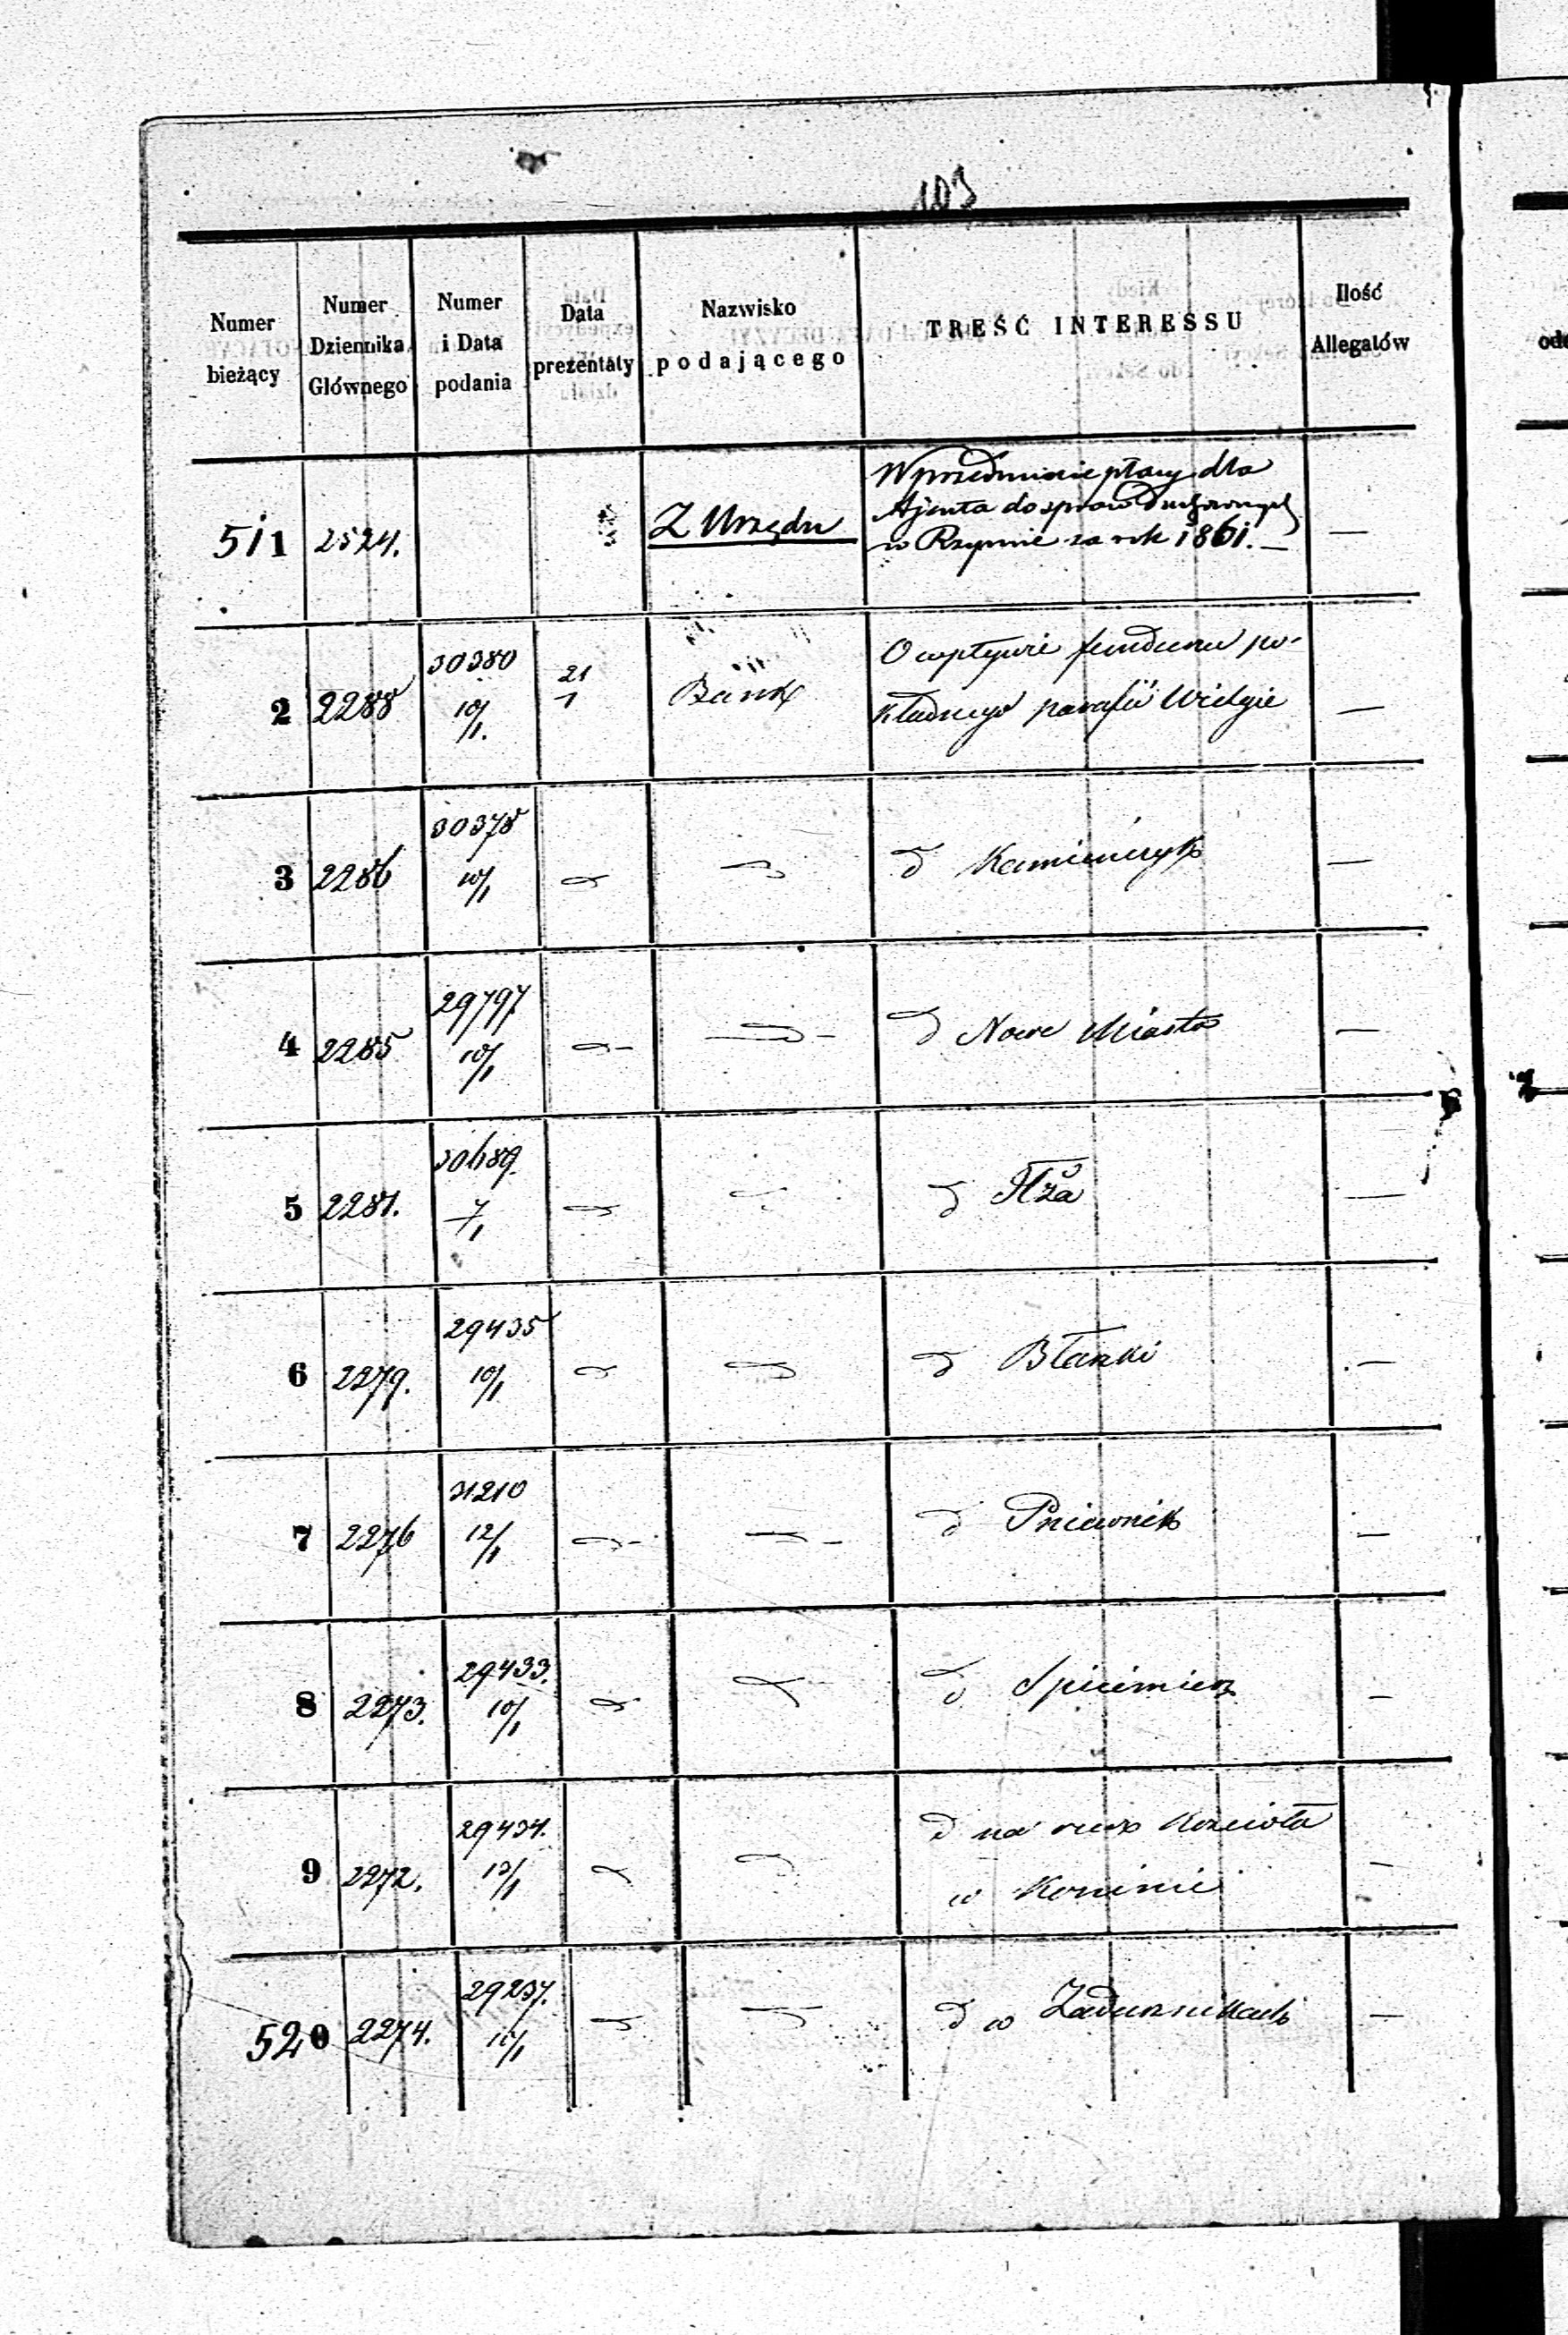 103
Numer bieżący
Numer Dziennika Głównego
Numer i Data podania
Data prezentaty
Nazwisko podającego
TREŚĆ INTERESSU
Ilość Allegatów
511 2524. Z Urzędu W przedmiocie płacy dla
Ajenta do spraw Duchownych
w Rzymie za rok 1861. —
2 2288 30380 10/1. 21/1 Bank O wpływie funduszu po-
kładnego parafii Wielgie —
3 2286 30378 10/1 d Kamieńczyk —
4 2285 29797. 10/1 d Nowe Miasto —
5 2281. 30689. 7/1 d Iłża —
6 2279. 29435 10/1 d Błaszki —
7 2276 31210 12/1 d Pniewnik —
8 2273. 29433. 10/1 d Spicimierz —
9 2272. 29434. 10/1 d na rzecz Kościoła
w Koninie —
520 2274. 29237. 10/1 d w Zadusznikach —